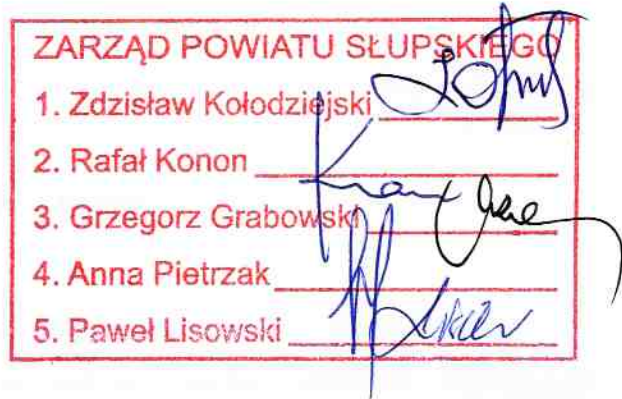 ZARZĄD POWIATU SŁUPSKIEGO
1. Zdzisław Kołodziejski
2. Rafał Konon
3. Grzegorz Grabowski
4. Anna Pietrzak
5. Paweł Lisowski